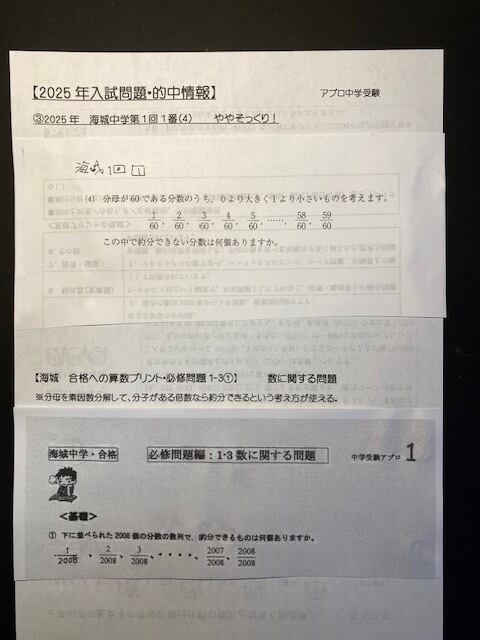 【2025年入試問題・的中情報】 アプロ中学受験
③2025年 海城中学第1回1番(4) ややそっくり!
海城1回 1
(4) 分母が60である分数のうち、0より大きく1より小さいものを考えます。
1/60, 2/60, 3/60, 4/60, 5/60, ……, 58/60, 59/60
この中で約分できない分数は何個ありますか。
【海城 合格への算数プリント・必修問題1-3①】 数に関する問題
※分母を素因数分解して、分子がある倍数なら約分できるという考え方が使える。
海城中学・合格 必修問題編:1-3数に関する問題 中学受験アプロ 1
<基礎>
① 下に並べられた2008個の分数の数列で、約分できるものは何個ありますか。
1/2008、2/2008、3/2008、・・・・、2007/2008、2008/2008